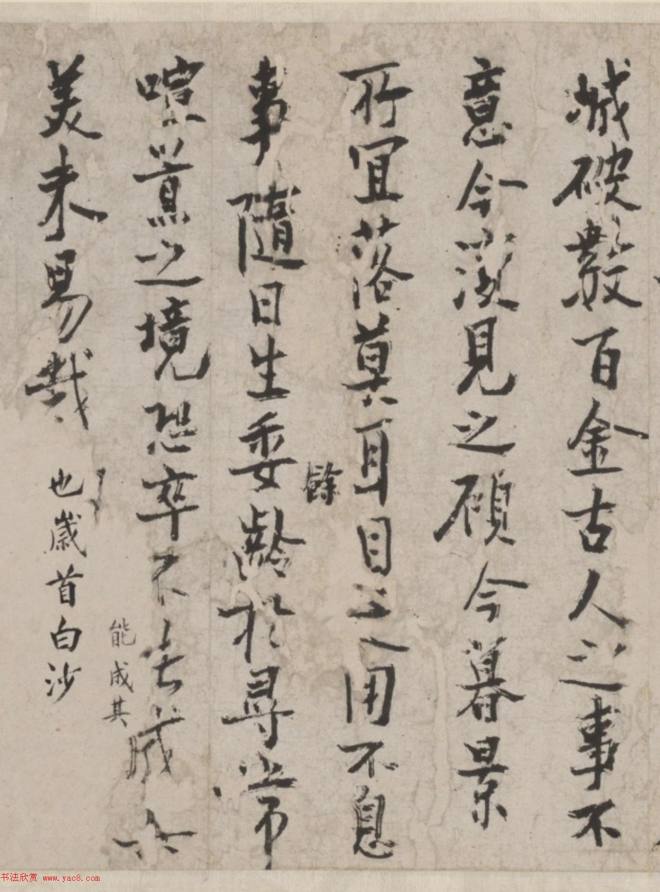 破數百金古人之事不
意今復見之顧今暮景
所宜落莫耳目之用不息
餘
事隨日生委齡於尋常
喧囂之境恐卒不能成其
能成其
美未易哉
也歲首白沙
书法欣赏 www.yac8.com